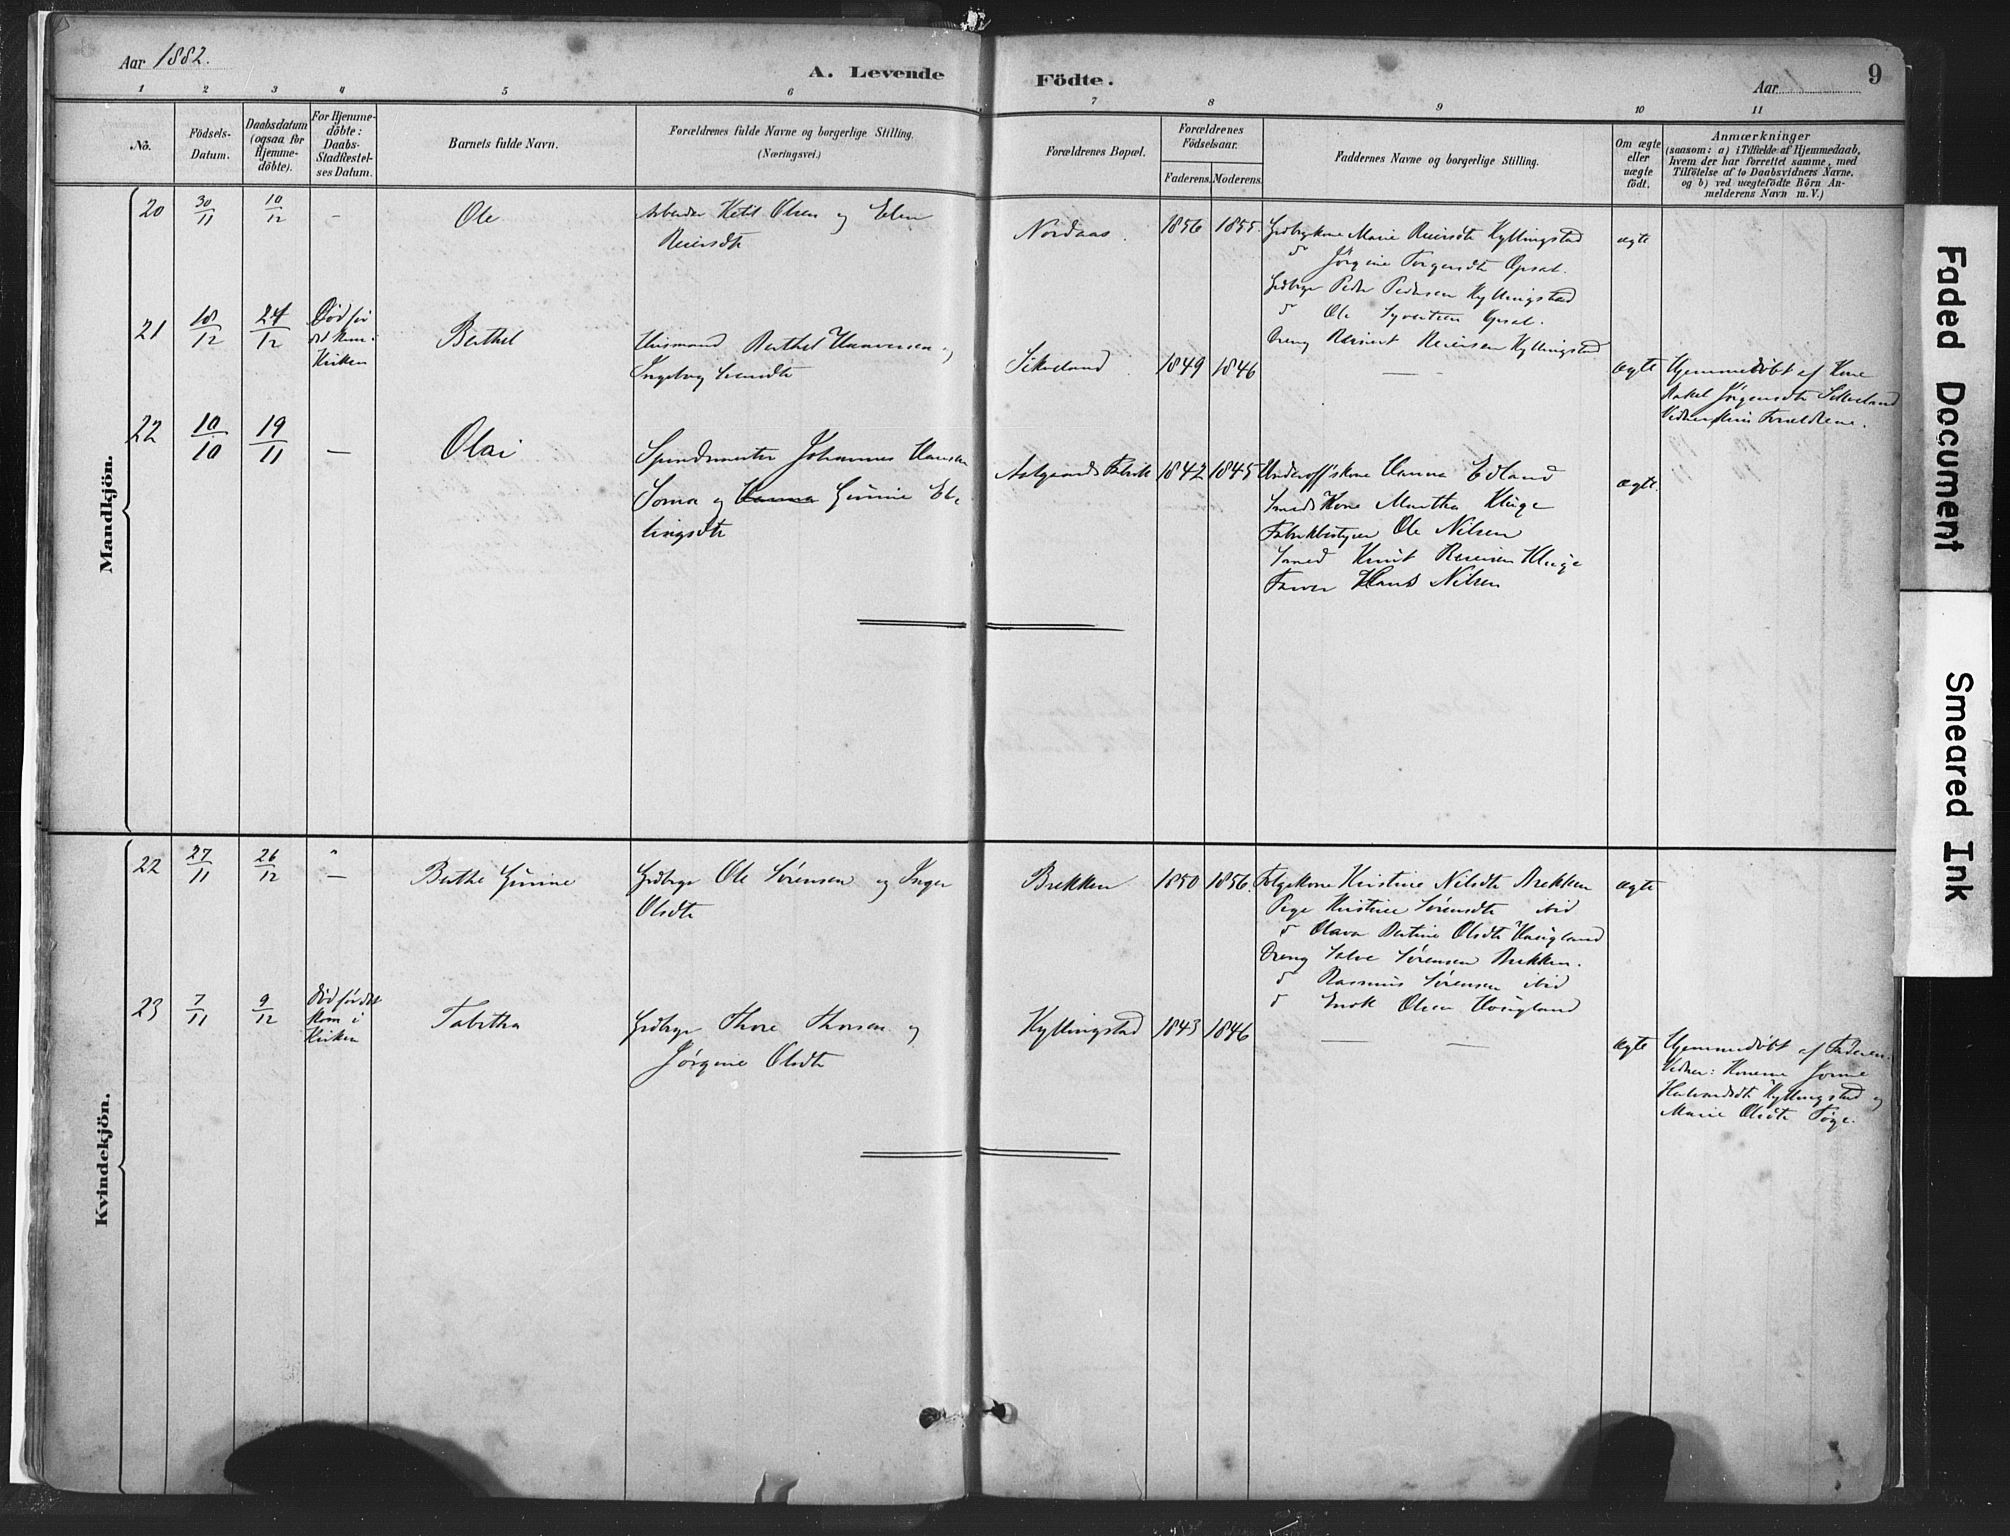 Aar 1882.
A. Levende
Födte.
Aar
9
1 2 3 4 5 6 7 8 9 10 11
No.
Födsels-
Datum.
Daabsdatum
(ogsaa for
Hjemme-
döbte).
For Hjemme-
döbte:
Daabs-
Stadfæstel-
ses Datum.
Barnets fulde Navn.
Forældrenes fulde Navne og borgerlige Stilling.
(Næringsvei.)
Forældrenes Bopæl.
Forældrenes
Födselsaar.
Faderens. Moderens.
Faddernes Navne og borgerlige Stilling.
Om ægte
eller
uægte
födt.
Anmærkninger
(saasom: a) i Tilfælde af Hjemmedaab,
hvem der har forrettet samme, med
Tilföielse af to Daabsvidners Navne,
og b) ved uægtefödte Börn An-
melderens Navn m. V.)
Mandkjön.
20 30/11 10/12 – Ole
Arbeider Ketil Olsen og Elen
Reiersdtr
Nordaas. 1856 1855.
Grdbrgkone Marie Reiersdtr Kyllingstad
Jørgine Torgersdtr Opsal.
Grdbrgr Peder Pedersen Kyllingstad
Ole Syvertsen Opsal.
Dreng Reinert Reiersen Kyllingstad
ægte
21 18/12 24/12
Død før
det kom i
Kirken
Berthel
Huusmand Berthel Haaversen og
Ingeborg Svendsdtr
Sikveland 1849 1846 — ægte
Hjemmedøbt af Kone
Rakel Jørgensdtr Sikveland
Vidner Forældrene.
22 10/10 19/11 – Olai
Spindemester Johannes Hansen
Soma og Hanna Gurine Er-
lingsdtr
Aalgaards Fabrik 1842 1845
Underoff.skone Hanna Edland
Smeds Kone Martha Kluge
Fabrikbestyrer Ole Nilsen
Smed Knut Reiersen Kluge
Farver Hans Nilsen
ægte.
Kvindekjön.
22 27/11 26/12 – Berthe Gurine
Grdbrgr Ole Sørensen og Inger
Olsdtr
Brekken 1850 1856.
Folgekone Kristine Nilsdtr Brekken
Pige Kristine Sørensdtr ibid
Olava Bertine Olsdtr Haugland
Dreng Salve Sørensen Brekken.
Rasmus Sørensen ibid
Enok Olsen Haugland
ægte
23 7/11 9/12
død før det
kom i
Kirken
Tabitha
Grdbrgr Thore Thorsen og
Jørgine Olsdtr
Kyllingstad 1843 1846 — — ægte
Hjemmedøbt af Faderen.
Vidner: Konerne
Halvardsdtr Kyllingstad og
Marie Olsdtr
Faded Document
Smeared Ink